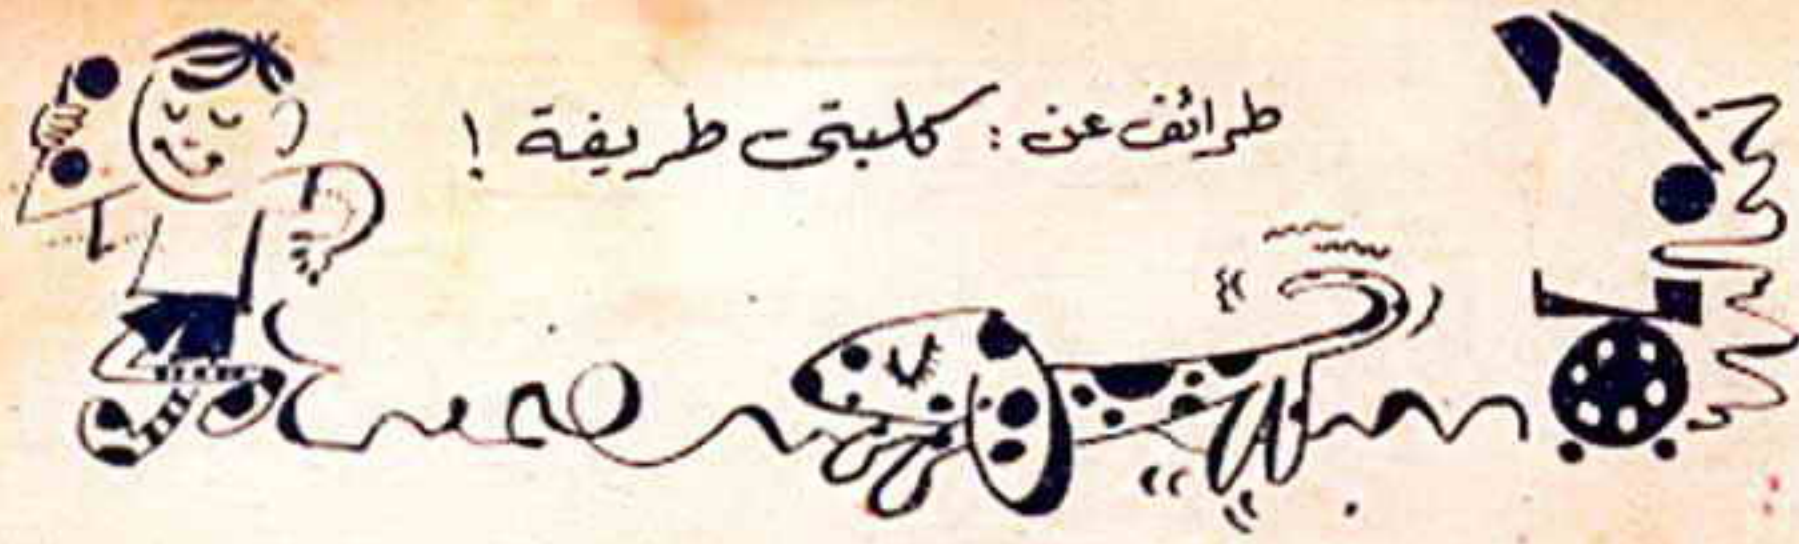 طرائف عن : كلبتى ظريفة !